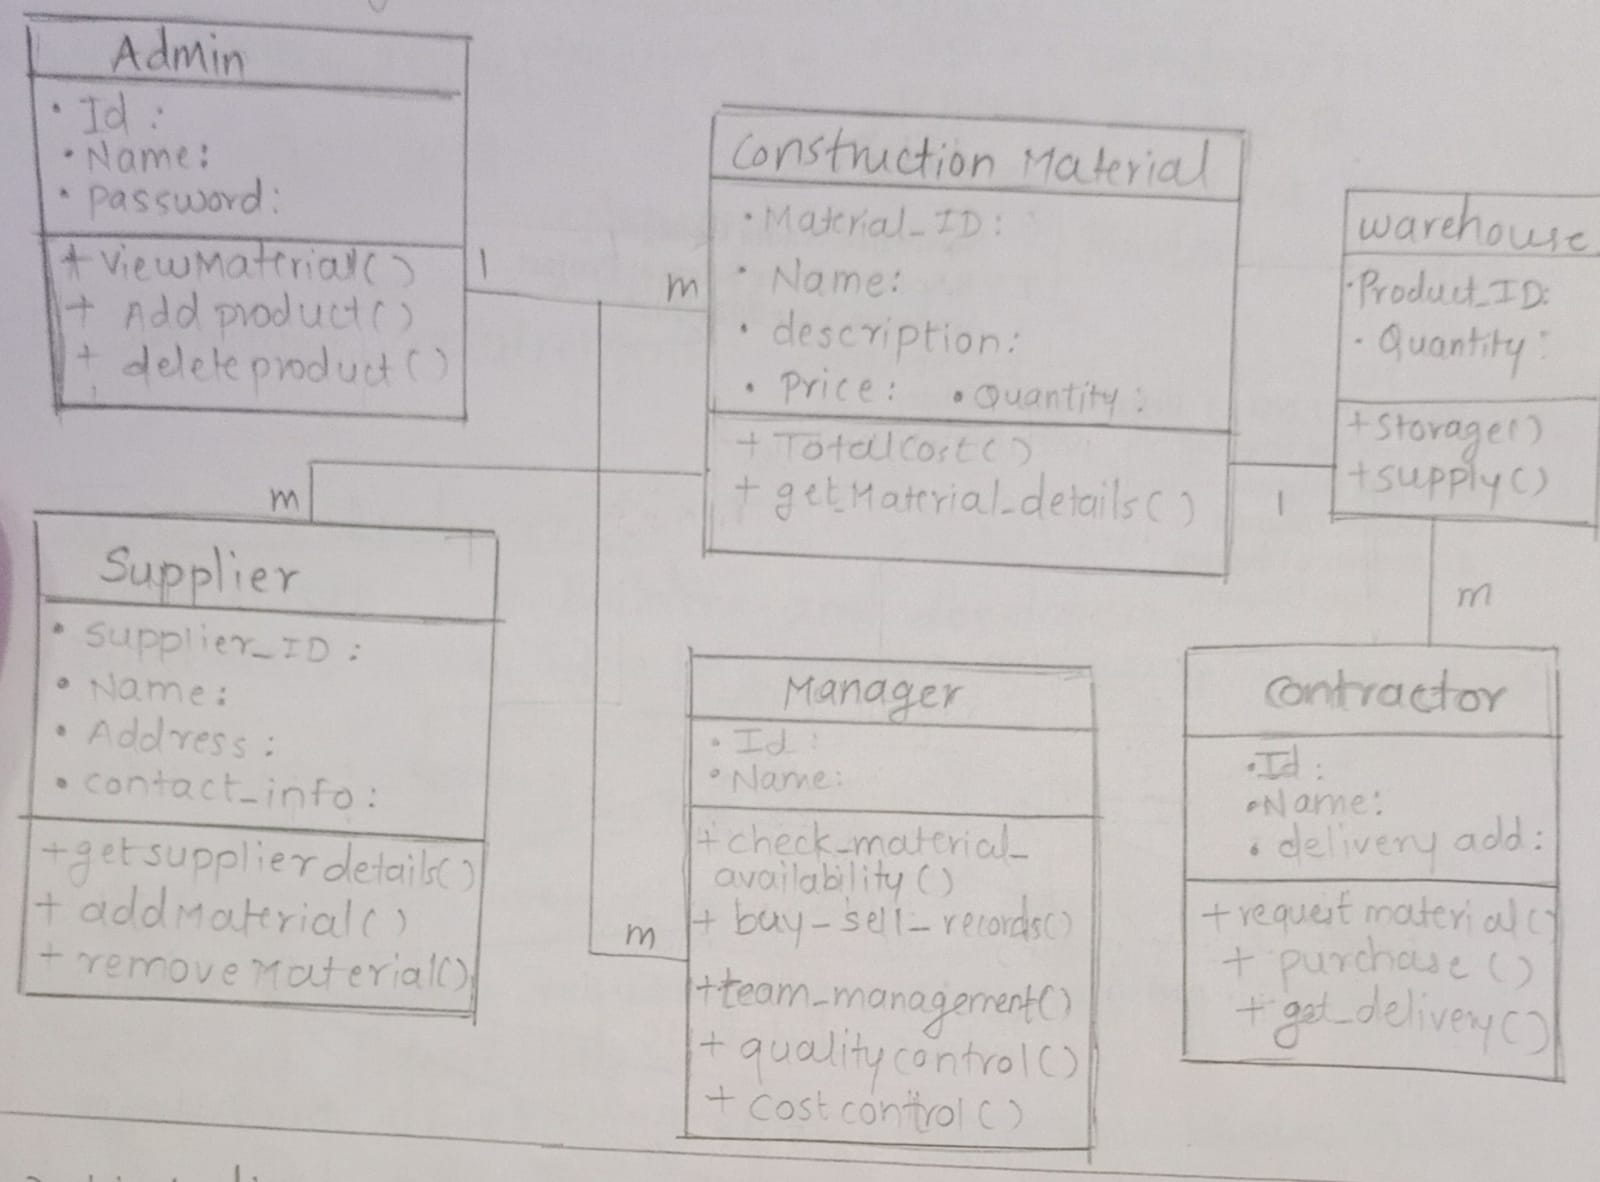 Admin
• Id :
• Name:
• password:
+ viewMaterial()
+ Add product()
+ delete product()
1
m
Construction Material
• Material_ID:
• Name:
• description:
• Price: • Quantity:
+ Totalcost()
+ getMaterial_details()
1
warehouse
• Product_ID:
• Quantity:
+ Storage()
+ supply()
m
m
Supplier
• Supplier_ID :
• Name:
• Address:
• contact_info:
+ getsupplier details()
+ addMaterial()
+ removeMaterial()
m
Manager
• Id :
• Name:
+ check_material_
availability()
+ buy_sell_records()
+ team_management()
+ quality control()
+ cost control()
Contractor
• Id :
• Name:
• delivery add:
+ request material()
+ purchase()
+ get_delivery()